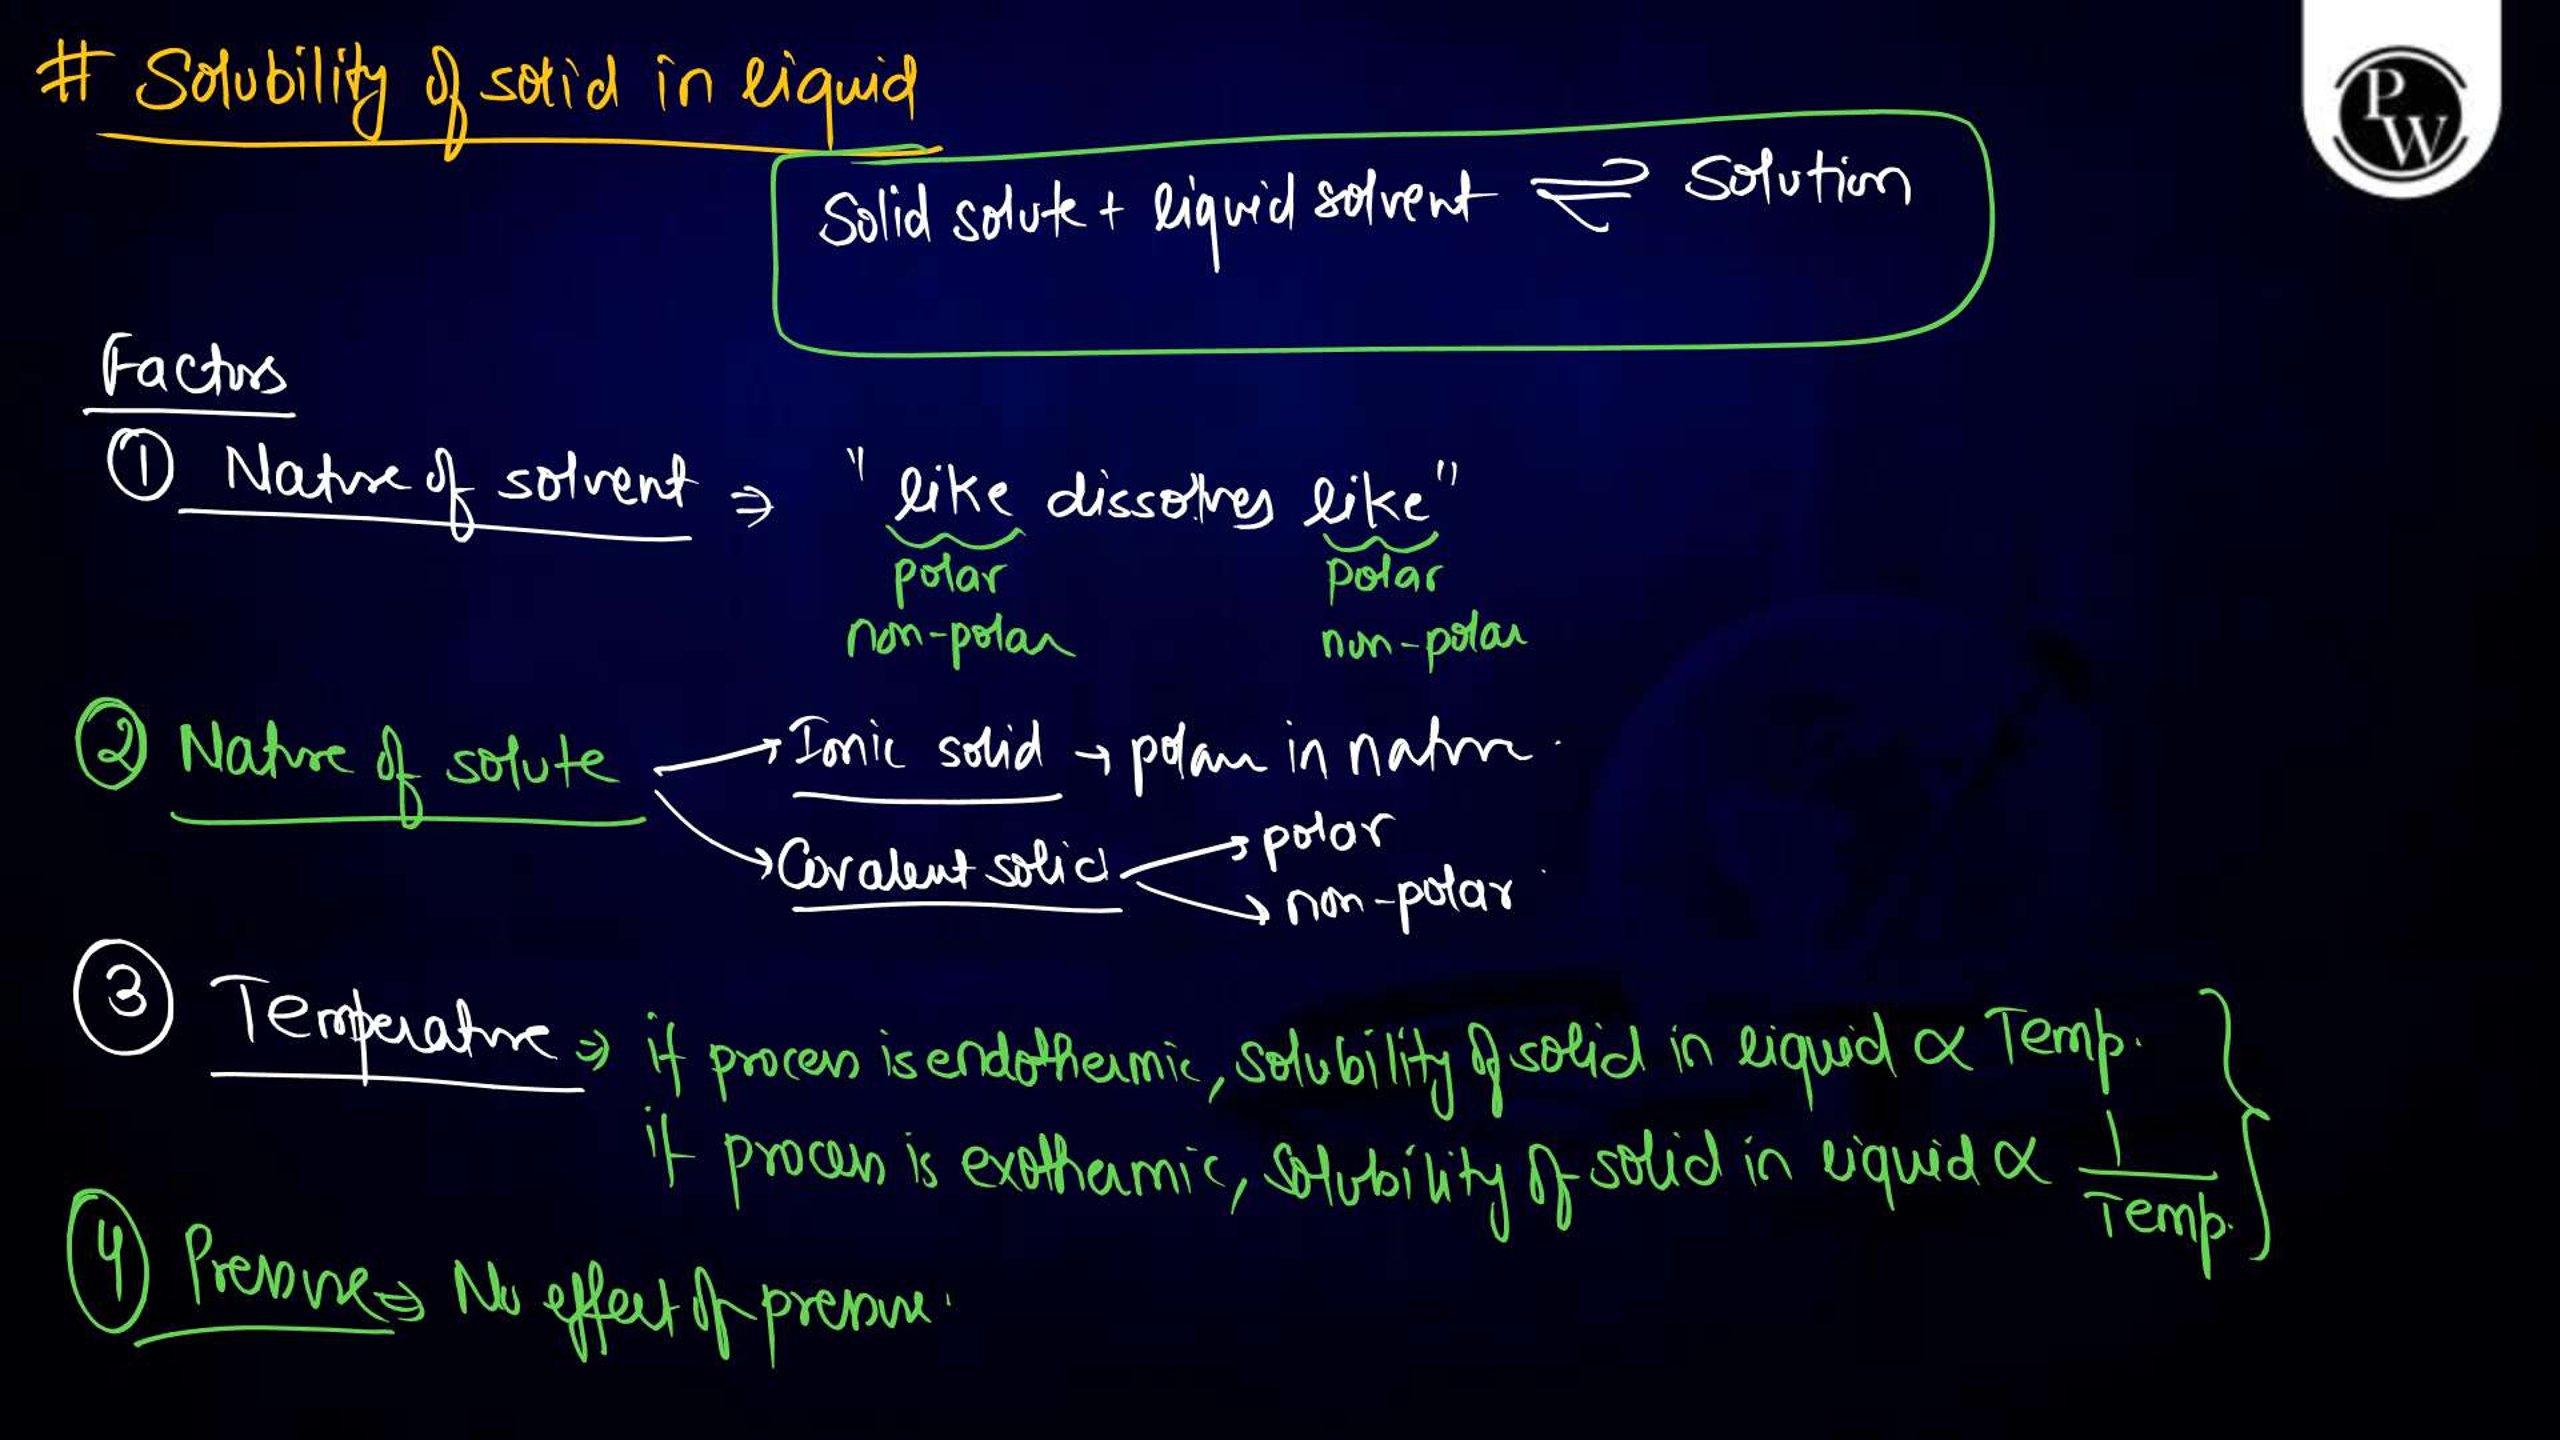 # Solubility of solid in liquid
Solid solute + liquid solvent ⇌ Solution
Factors
① Nature of solvent ⇒ "like dissolves like"
polar polar
non-polar non-polar
② Nature of solute → Ionic solid → polar in nature.
→ Covalent solid → polar
→ non-polar
③ Temperature ⇒ if process is endothermic, solubility of solid in liquid ∝ Temp.
if process is exothermic, solubility of solid in liquid ∝ 1/Temp.
④ Pressure ⇒ No effect of pressure.
PW